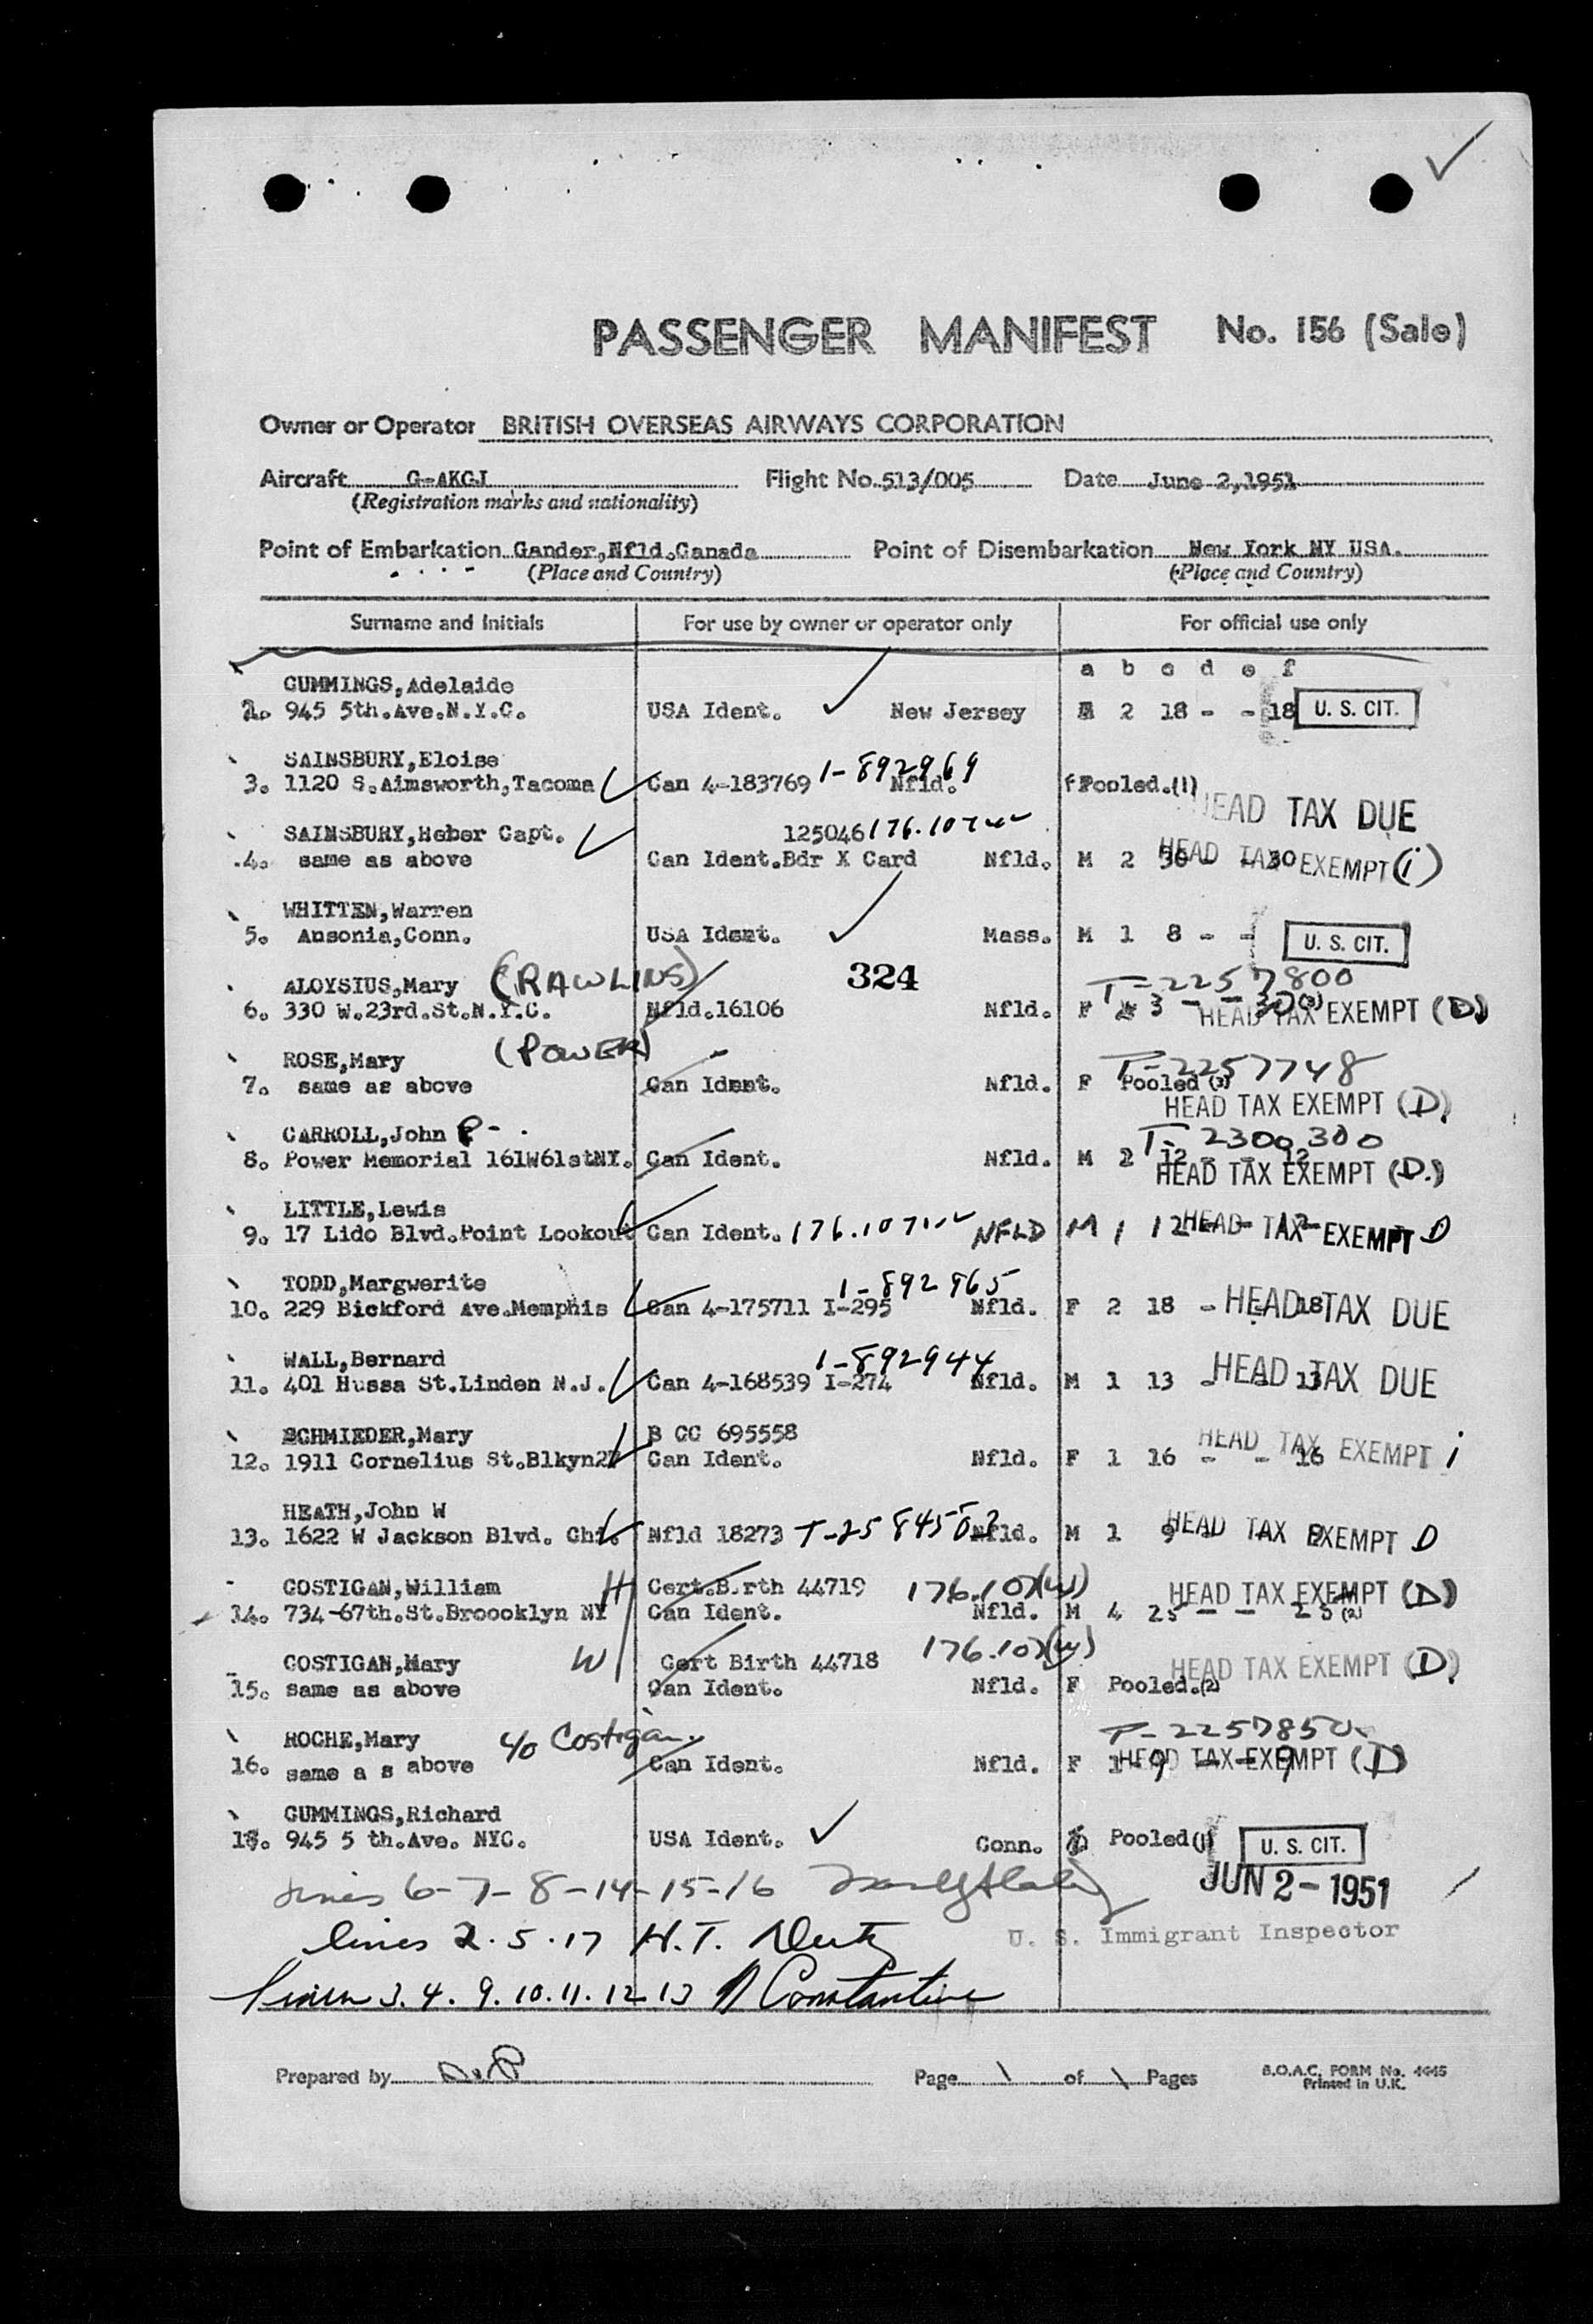 PASSENGER MANIFEST No. 156 (Sale)
Owner or Operator BRITISH OVERSEAS AIRWAYS CORPORATION
Aircraft G-AKGJ Flight No. 513/005 Date June 2,1951
(Registration marks and nationality)
Point of Embarkation Gander,Nfld.Canada Point of Disembarkation New York NY USA.
(Place and Country) (Place and Country)
Surname and Initials For use by owner or operator only For official use only
a b c d e f
CUMMINGS,Adelaide
2. 945 5th.Ave.N.Y.C. USA Ident. New Jersey 2 18 - - 18 U. S. CIT.
SAINSBURY,Eloise 1-892969
3. 1120 S.Ainsworth,Tacoma Can 4-183769 Nfld. F Pooled.(1)
HEAD TAX DUE
SAINSBURY,Heber Capt. 125046 176.107
4. same as above Can Ident.Bdr X Card Nfld. M 2 30 - - 30 HEAD TAX EXEMPT (i)
WHITTEN,Warren
5. Ansonia,Conn. USA Ident. Mass. M 1 8 - - U. S. CIT.
ALOYSIUS,Mary (RAWLINS) 324 T-2257800
6. 330 W.23rd.St.N.Y.C. Nfld.16106 Nfld. F 3 - - 30 HEAD TAX EXEMPT (D)
ROSE,Mary (POWER) T-2257748
7. same as above Can Ident. Nfld. F Pooled (3)
HEAD TAX EXEMPT (D)
CARROLL,John P- T-2300300
8. Power Memorial 161W61stNY. Can Ident. Nfld. M 2 12 - - 12
HEAD TAX EXEMPT (D.)
LITTLE,Lewis
9. 17 Lido Blvd.Point Lookout Can Ident. 176.107 NFLD M 1 12 - - 12 HEAD TAX EXEMPT D
TODD,Margwerite 1-892965
10. 229 Bickford Ave.Memphis Can 4-175711 I-295 Nfld. F 2 18 - - 18 HEAD TAX DUE
WALL,Bernard 1-892944
11. 401 Hussa St.Linden N.J. Can 4-168539 I-274 Nfld. M 1 13 - - 13 HEAD TAX DUE
SCHMIEDER,Mary B CC 695558
12. 1911 Cornelius St.Blkyn27 Can Ident. Nfld. F 1 16 - - 16 HEAD TAX EXEMPT i
HEATH,John W
13. 1622 W Jackson Blvd. Chi. Nfld 18273 T-2584503 Nfld. M 1 9 - - 9 HEAD TAX EXEMPT D
COSTIGAN,William H Cert.Birth 44719 176.107(w) HEAD TAX EXEMPT (D)
14. 734-67th.St.Broooklyn NY Can Ident. Nfld. M 4 25 - - 25 (2)
COSTIGAN,Mary W Cert Birth 44718 176.107(w) HEAD TAX EXEMPT (D)
15. same as above Can Ident. Nfld. F Pooled.(2)
ROCHE,Mary c/o Costigan. T-2257850
16. same a s above Can Ident. Nfld. F 1 9 - - 9 HEAD TAX EXEMPT (D)
CUMMINGS,Richard
17. 945 5 th.Ave. NYC. USA Ident. Conn. Pooled(1) U. S. CIT.
Lines 6-7-8-14-15-16 JUN 2 - 1951
lines 2.5.17 H.T. U. S. Immigrant Inspector
Lines 3.4.9.10.11.12 13 Constantine
Prepared by Page 1 of 1 Pages B.O.A.C. FORM No. 4445
Printed in U.K.